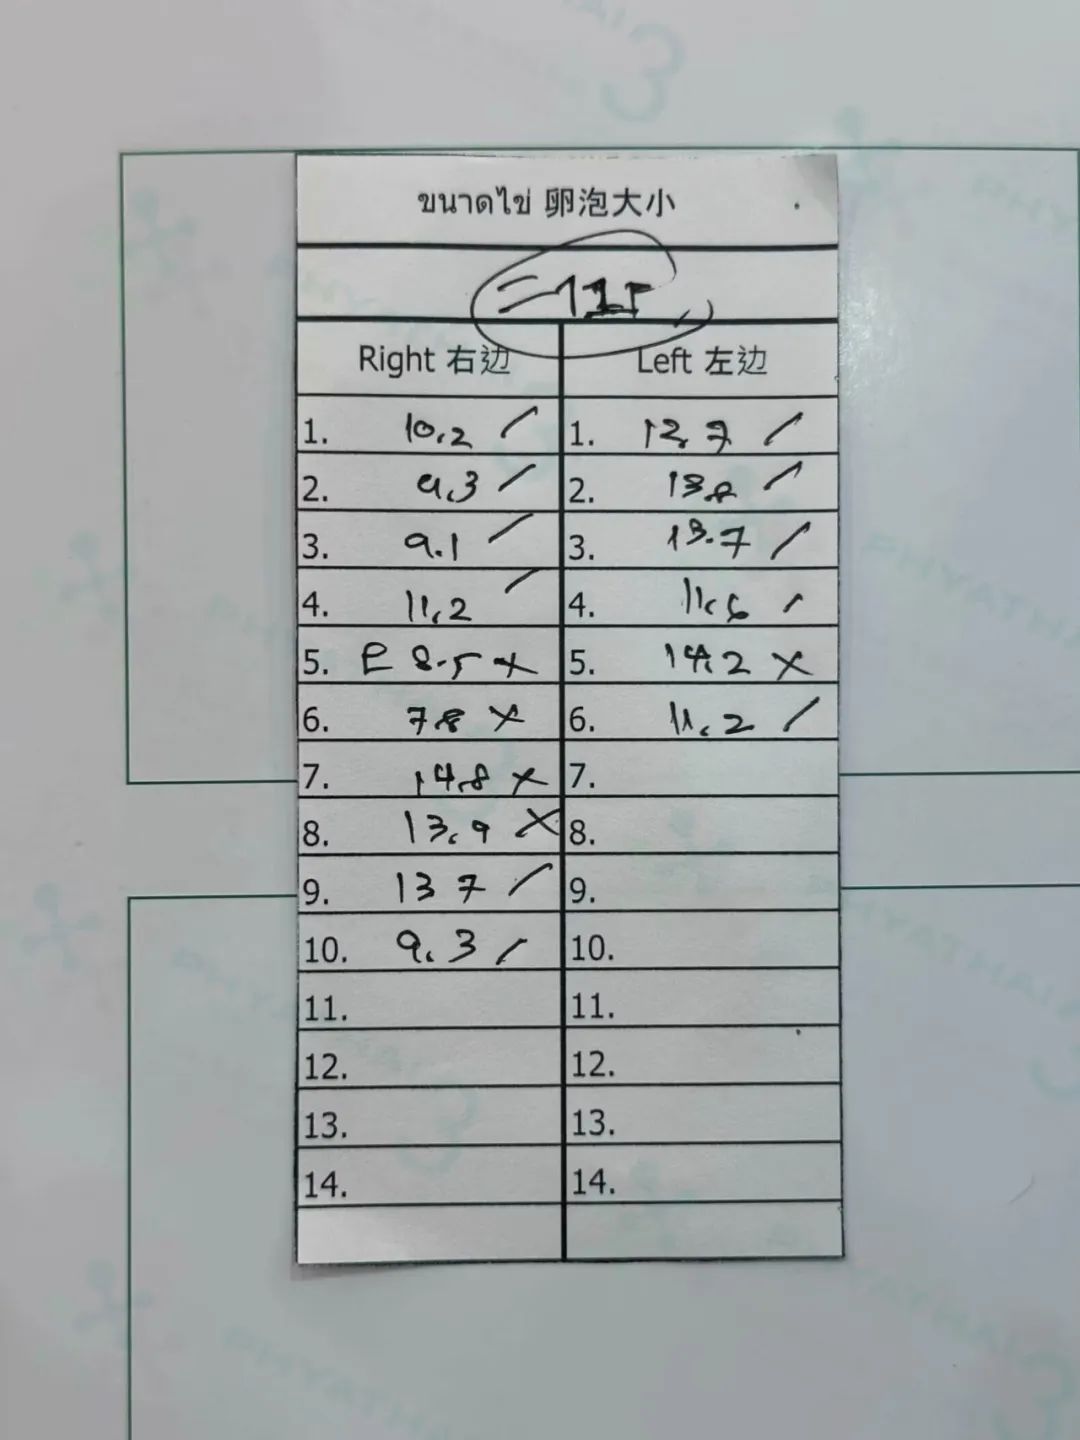 ขนาดไข่ 卵泡大小
Right 右边 Left 左边
1. 10.2 / 1. 12.7 /
2. 9.3 / 2. 13.8 /
3. 9.1 / 3. 13.7 /
4. 11.2 / 4. 11.6 /
5. E 8.5 x 5. 14.2 x
6. 7.8 x 6. 11.2 /
7. 14.8 x 7.
8. 13.9 x 8.
9. 13 7 / 9.
10. 9.3 / 10.
11. 11.
12. 12.
13. 13.
14. 14.